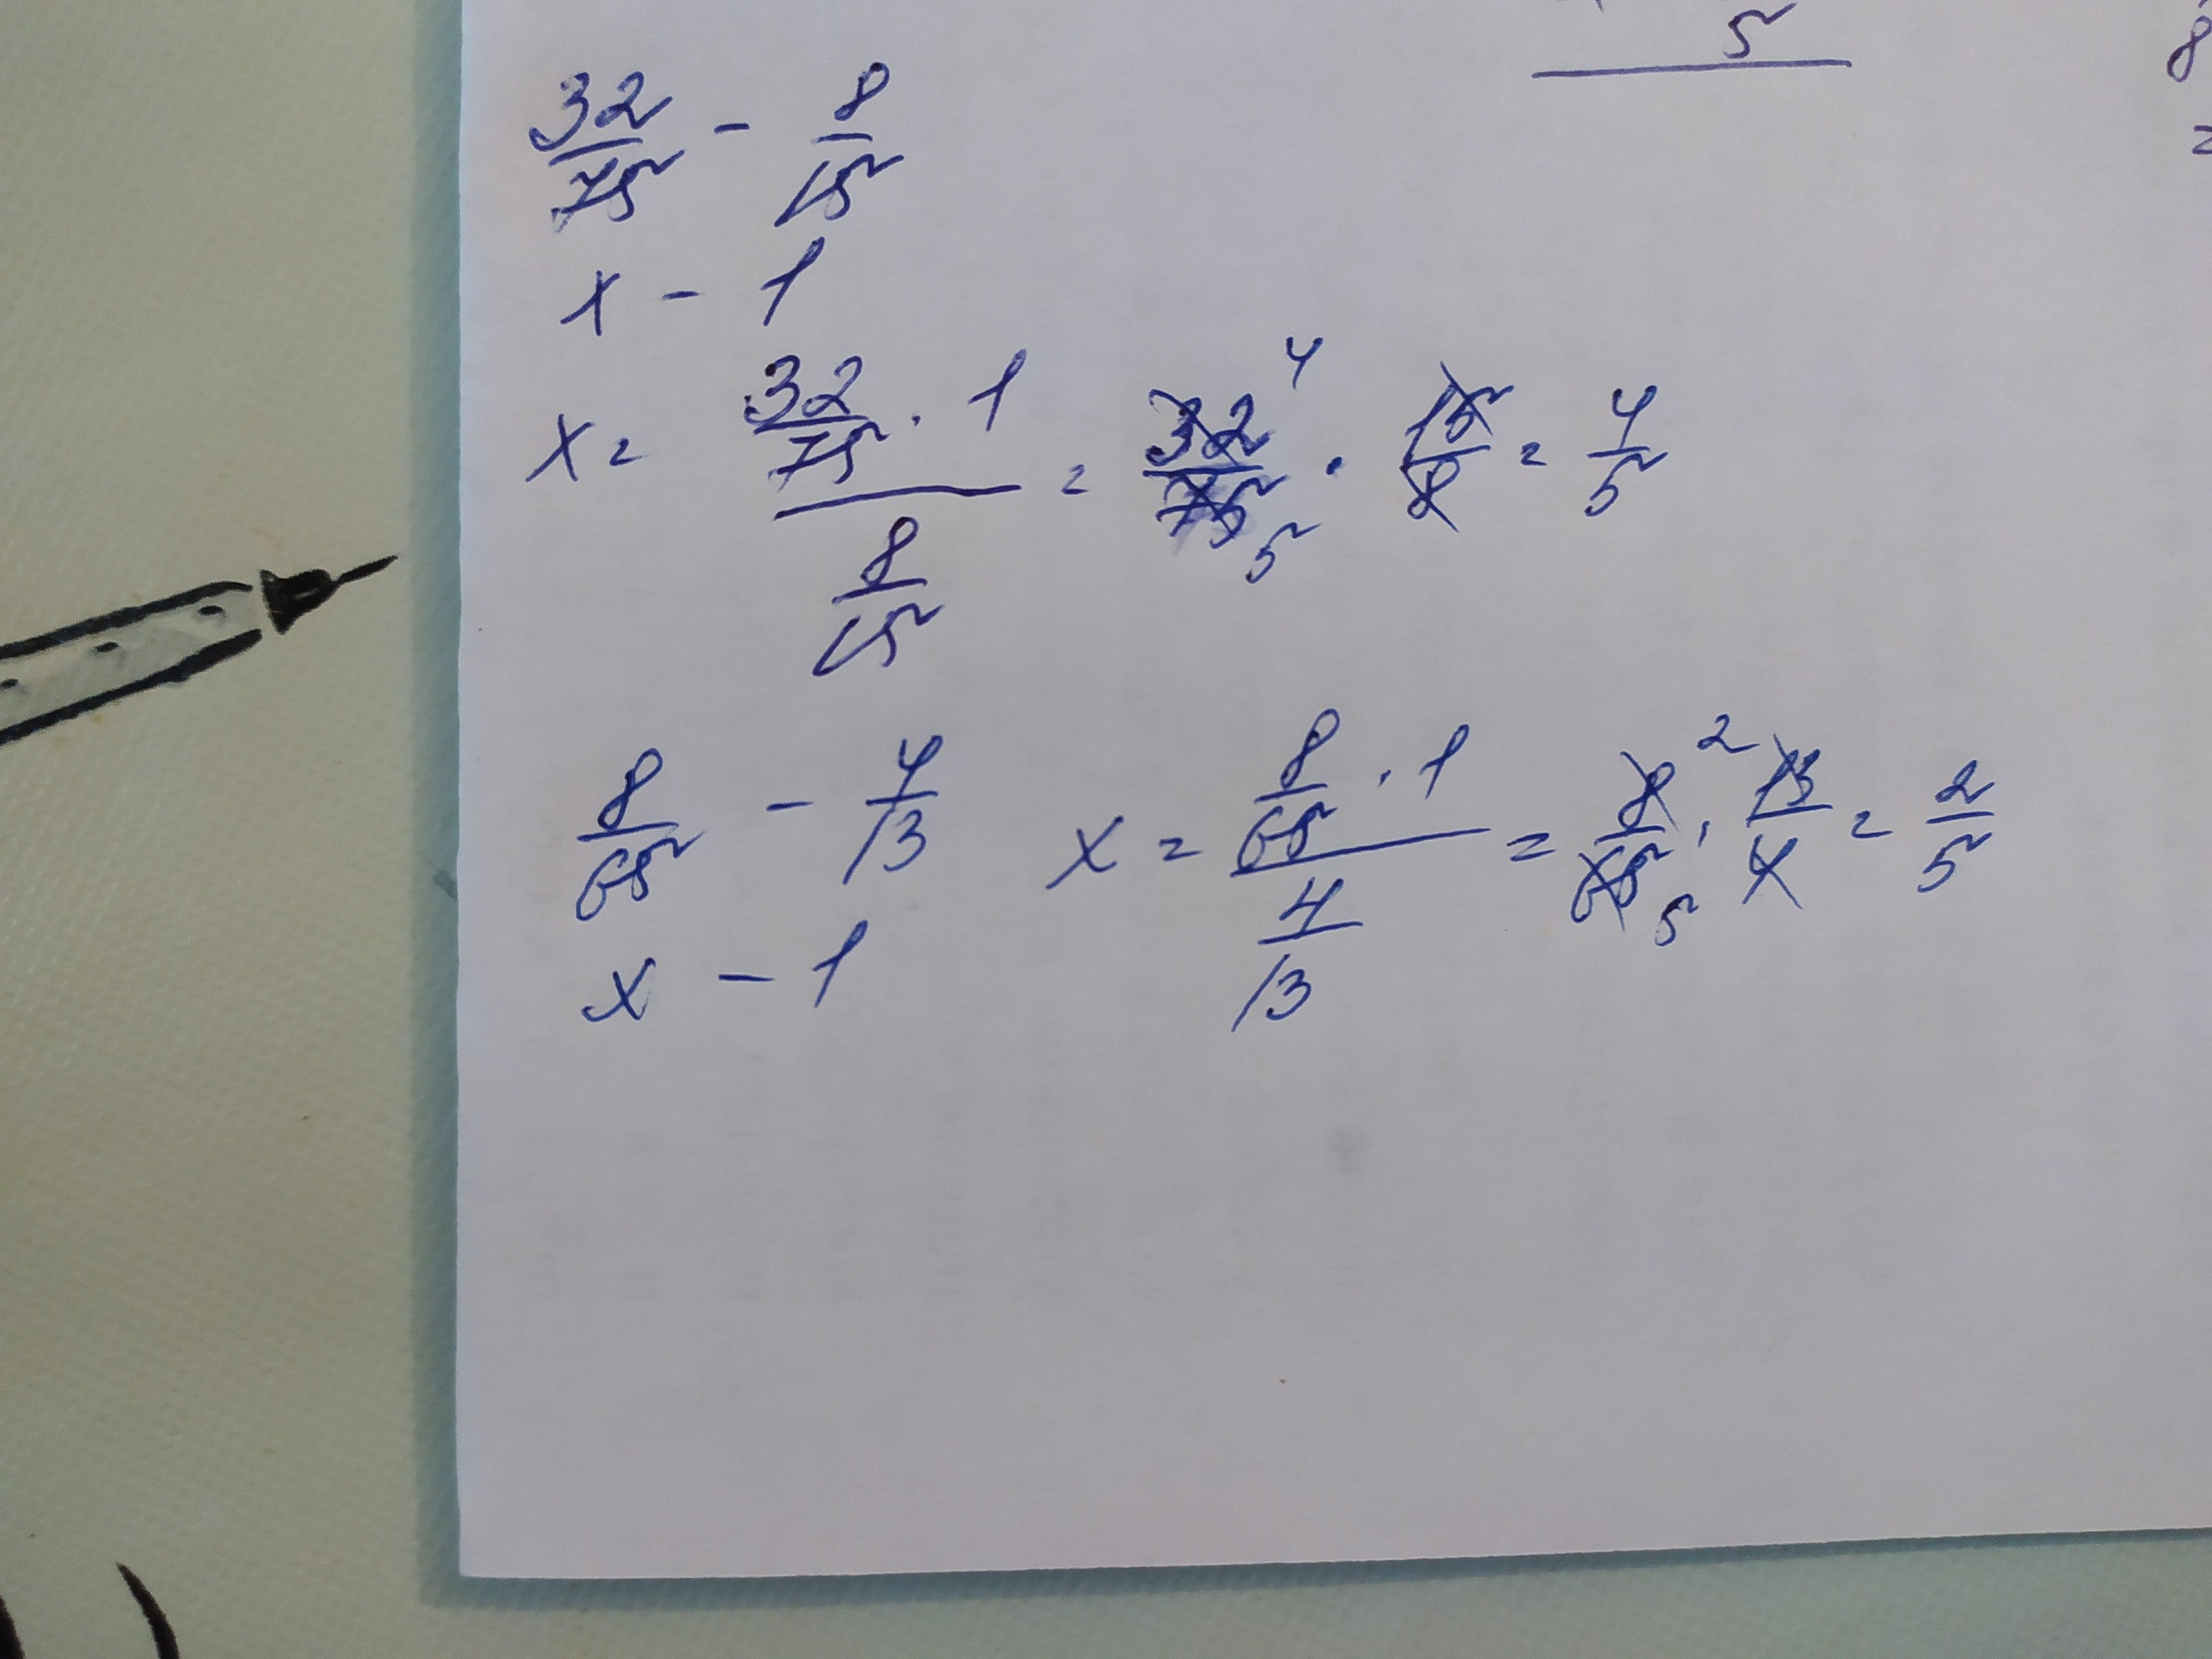 5
8
=
32/75 - 8/15
x - 1
x = (32/75 · 1)/(8/15) = 32/75 4 5 · 15/8 = 4/5
8/65 - 4/13
x - 1
x = (8/65 · 1)/(4/13) = 8/65 2 5 · 13/4 = 2/5